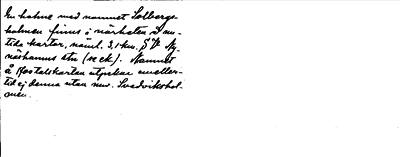 En holme med namnet Solbergs-
holmen finns i närheten å nu-
tida kartor, näml. 3,1 km. SV Ny-
näshamns stn (ec ek). Namnet
å Kostelskartan utpekar emeller-
tid ej denna utan nuv. Svedvikshol-
men.